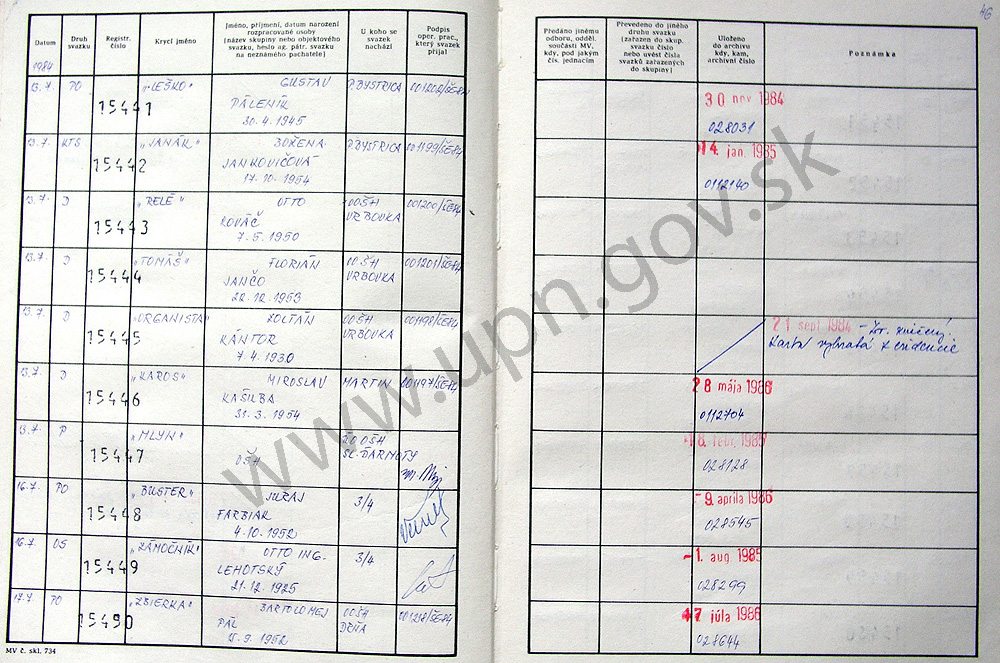 46
Datum
Druh svazku
Registr. číslo
Krycí jméno
Jméno, příjmení, datum narození rozpracované osoby (název skupiny nebo objektového svazku, heslo ag. pátr. svazku na neznámého pachatele)
U koho se svazek nachází
Podpis oper. prac., který svazek přijal
Předáno jinému odboru, odděl. součásti MV, kdy, pod jakým čís. jednacím
Převedeno do jiného druhu svazku (zařazen do skup. svazku číslo nebo uvést čísla svazků zařazených do skupiny)
Uloženo do archivu kdy, kam, archivní číslo
Poznámka
1984
13.7. PO 15441 „LEŠKO" GUSTAV P. BYSTRICA 001202/ŠE-84 30 nov 1984
PÁLENÍK 028031
30.4.1945
13.7. KTS 15442 „JANÁK" BOŽENA P. BYSTRICA 001199/ŠE-84 14 jan. 1985
JANKOVIČOVÁ 0112140
17.10.1954
13.7. D 15443 „RELÉ" OTTO OOŠH
KOVÁČ VRBOVKA 001200/ŠE-84
7.5.1950
13.7. D 15444 „TOMÁŠ" FLORIÁN OOŠH 001201/ŠE-84
JANČO VRBOVKA
22.12.1953
13.7. D 15445 „ORGANISTA" ZOLTÁN OOŠH 001198/ŠE-84 21 sept 1984 - zv. zničený.
KÁNTOR VRBOVKA Karta vybratá z evidencie
7.4.1930
13.7. D 15446 „KAROS" MIROSLAV MARTIN 001197/ŠE-84 28 mája 1986
KAŠUBA 0112704
31.3.1954
13.7. P 15447 „MLYN" 20 OŠH febr. 1985
OŠH SL. ĎARMOTY 028128
16.7. PO 15448 „BUSTER" JURAJ 3/4 -9. apríla 1986
FARBIAK 028545
4.10.1952
16.7. OS 15449 „ZÁMOČNÍK" OTTO ING. 3/4 -1. aug 1985
LEHOTSKÝ 028299
21.12.1925
17.7 PO 15450 „ZBIERKA" BARTOLOMEJ OOŠH 001218/ŠE-84 júla 1986
PÁL 028644
9.1952
MV č. skl. 734
www.upn.gov.sk